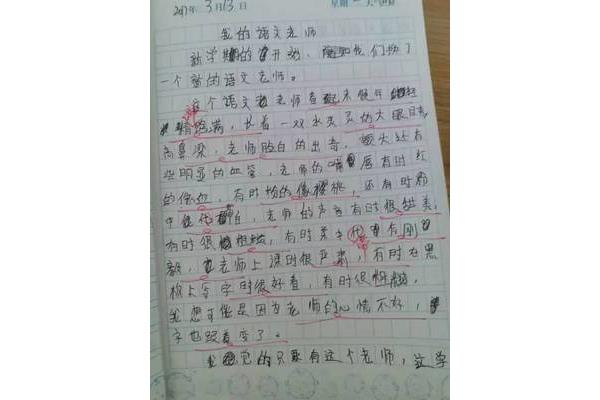 2017年3月13日 星期一 天气
我的语文老师
新学期的开始，我们换了
一个新的语文老师。
这个语文老师看起来很年
精饱满，长着一双水灵灵的大眼
高鼻梁，老师脸白的出奇，额头还有
些明显的血管，老师的嘴唇有时红
的像血，有时粉的像樱桃，还有时粉
中带白，老师的声音有时很甜美，
有时很，有时柔中带有刚
毅，老师上课时很严肃，有时在黑
板上写字时很好看，有时很
我想可能是因为老师的心情不好，
字也跟着变了。
我觉的只有这个老师，这学